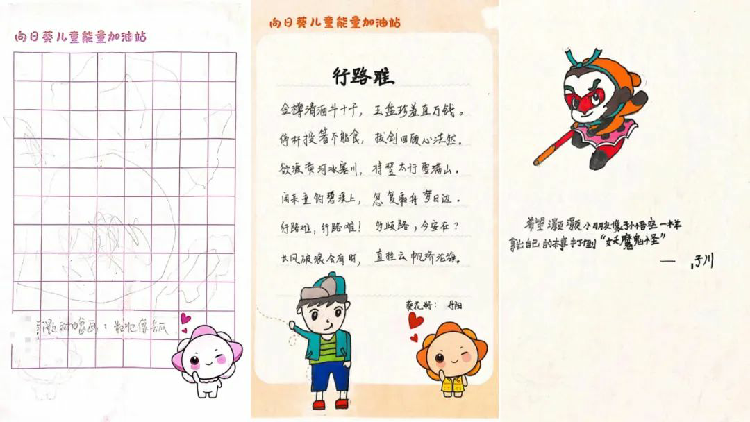 向日葵儿童能量加油站
向日葵儿童能量加油站
行路难
金樽清酒斗十千，玉盘珍羞直万钱。
停杯投箸不能食，拔剑四顾心茫然。
欲渡黄河冰塞川，将登太行雪满山。
闲来垂钓碧溪上，忽复乘舟梦日边。
行路难，行路难！多歧路，今安在？
长风破浪会有时，直挂云帆济沧海。
希望灏颢小朋友像孙悟空一样
拿出自己的本事打倒“妖魔鬼怪”
—— 于川